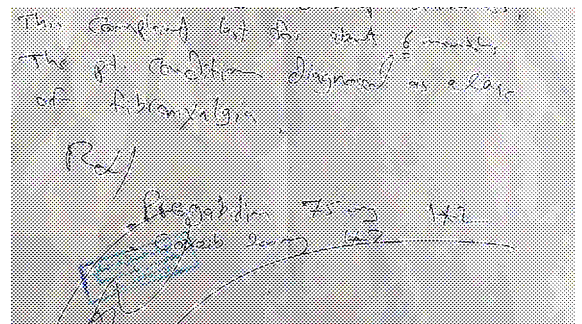 This complaint last for about 6 months,
The pt. condition diagnosed as a case
of fibromyalgia.
Rx/
Pregabalin 75 mg 1x2
200 mg 1x2